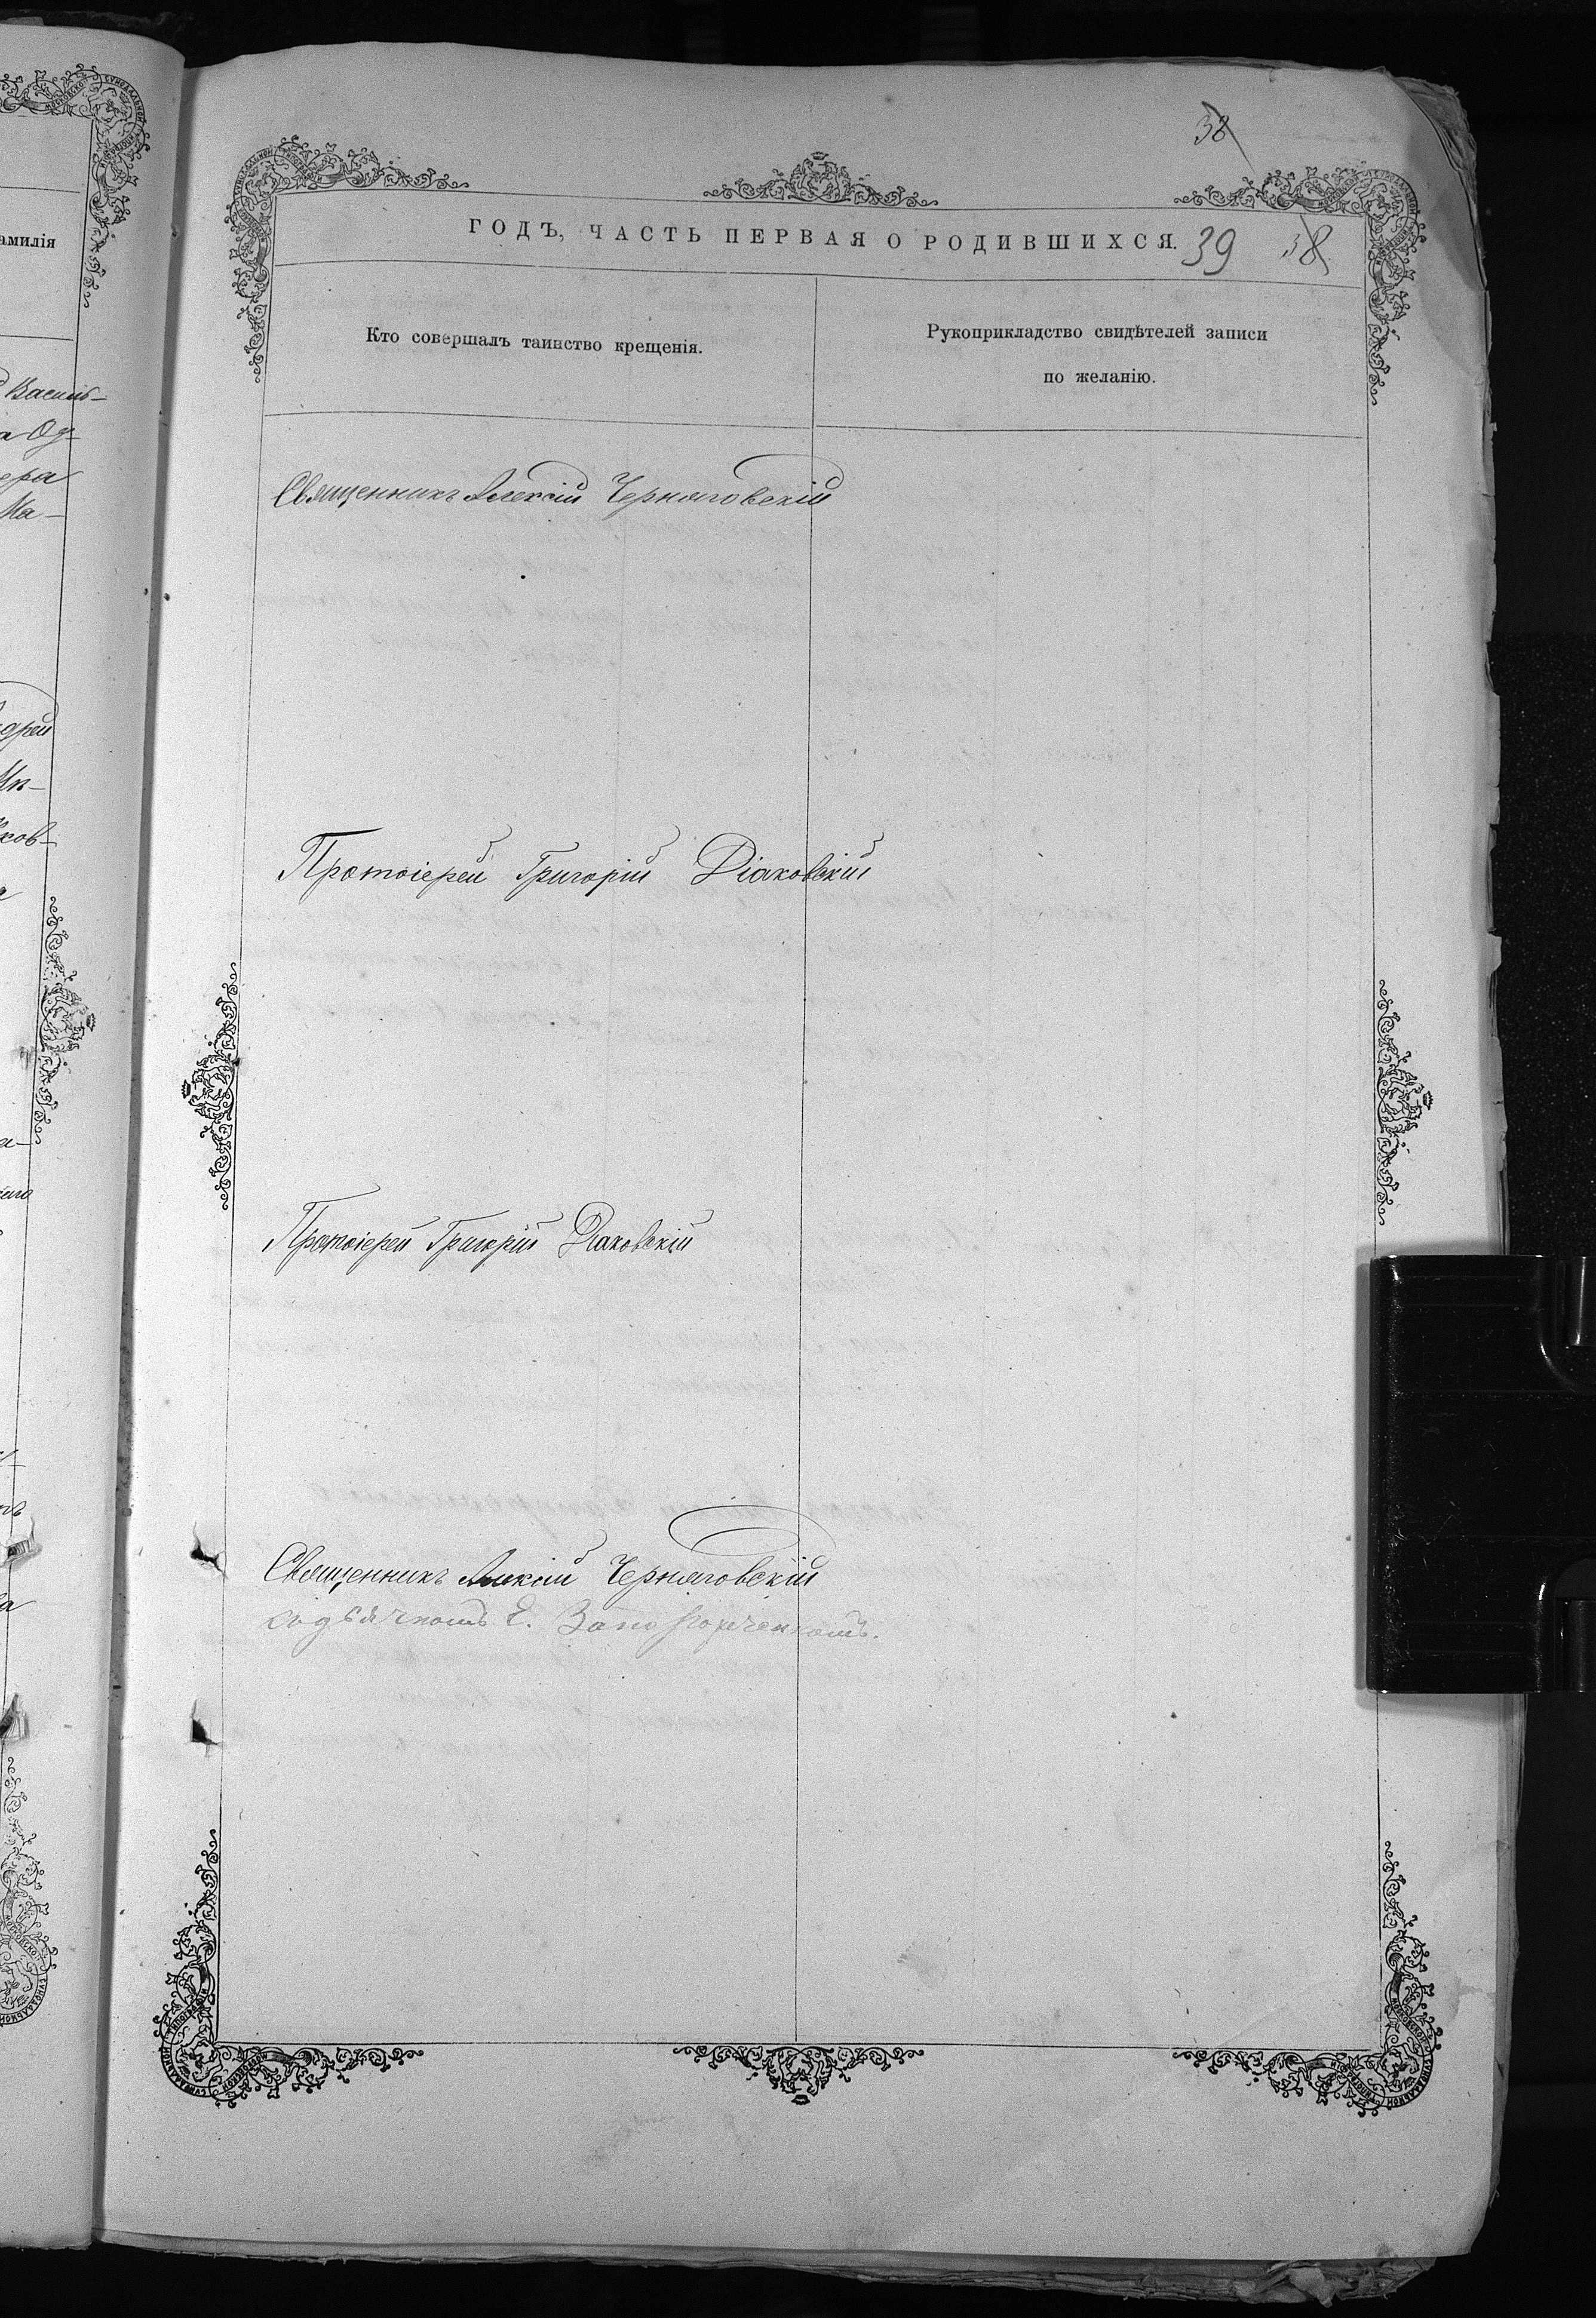 38
ГОДЪ, ЧАСТЬ ПЕРВАЯ О РОДИВШИХСЯ. 39 38
амилія
Кто совершалъ таинство крещенія.
Рукоприкладство свидѣтелей записи
по желанію.
Василь-
а Од-
ера
Ма-
Священникъ Алексій Черняговскій
дрей
ков-
Протоіерей Григорій Діаковскій
Протоіерей Григорій Діаковскій
Священникъ Алексій Черняговскій
съ дьячкомъ Е. Запорожченкомъ.